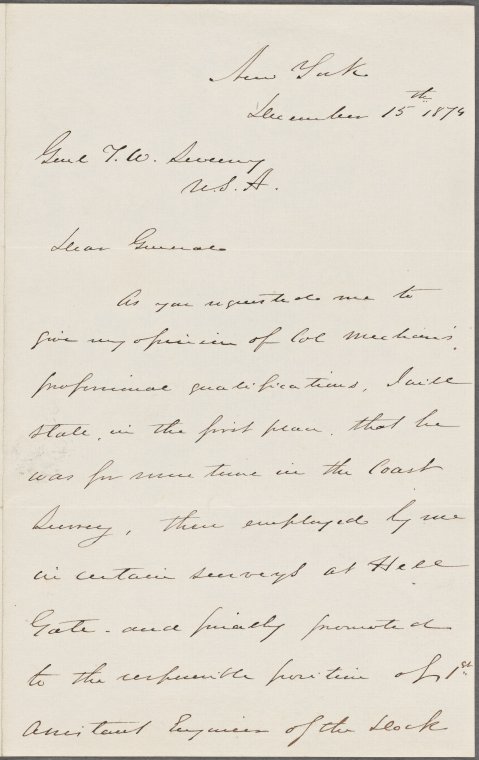 New York
December 15th 1874
Genl T. W. Sweeny
U.S.A.
Dear General
As you requested me to
give my opinion of Col Meehan's
professional qualifications, I will
state, in the first place, that he
was for some time in the Coast
Survey, then employed by me
in certain surveys at Hell
Gate - and finally promoted
to the responsible position of 1st
Assistant Engineer of the Dock